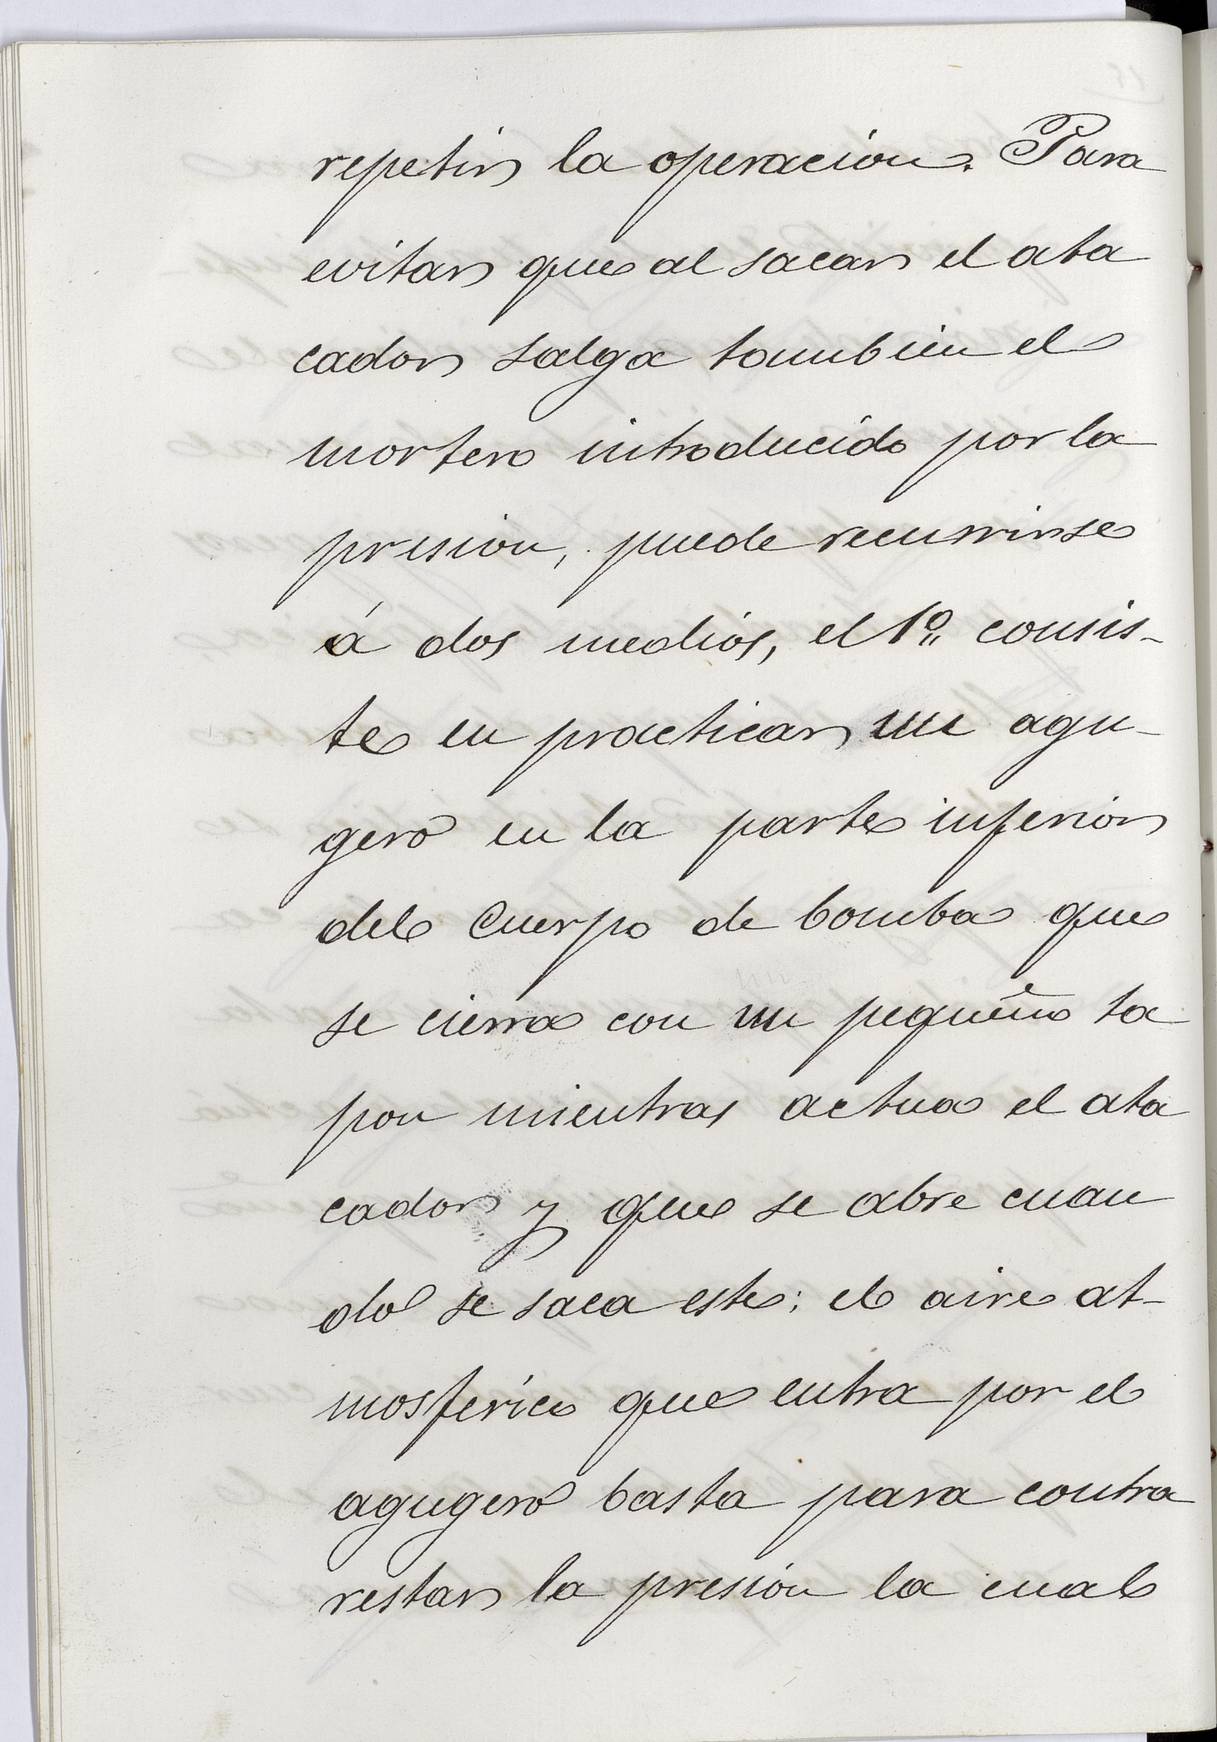 repetir la operacion. Para
evitar que al sacar el ata
cador salga tambien el
mortero introducido por la
presion, puede recurrirse
á dos medios, el 1º consis-
te en practicar un agu-
gero en la parte inferior
del Cuerpo de bomba que
se cierra con un pequeño ta
pon mientras actua el ata
cador y que se abre cuan
do se saca este; el aire at-
mosferico que entra por el
agugero basta para contra
restar la presion la cual